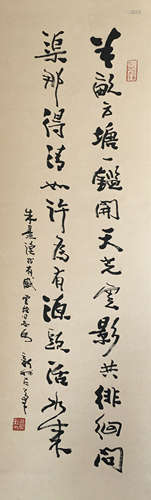 半畝方塘一鑑開天光雲影共徘徊問
渠那得清如許為有源頭活水來
朱熹